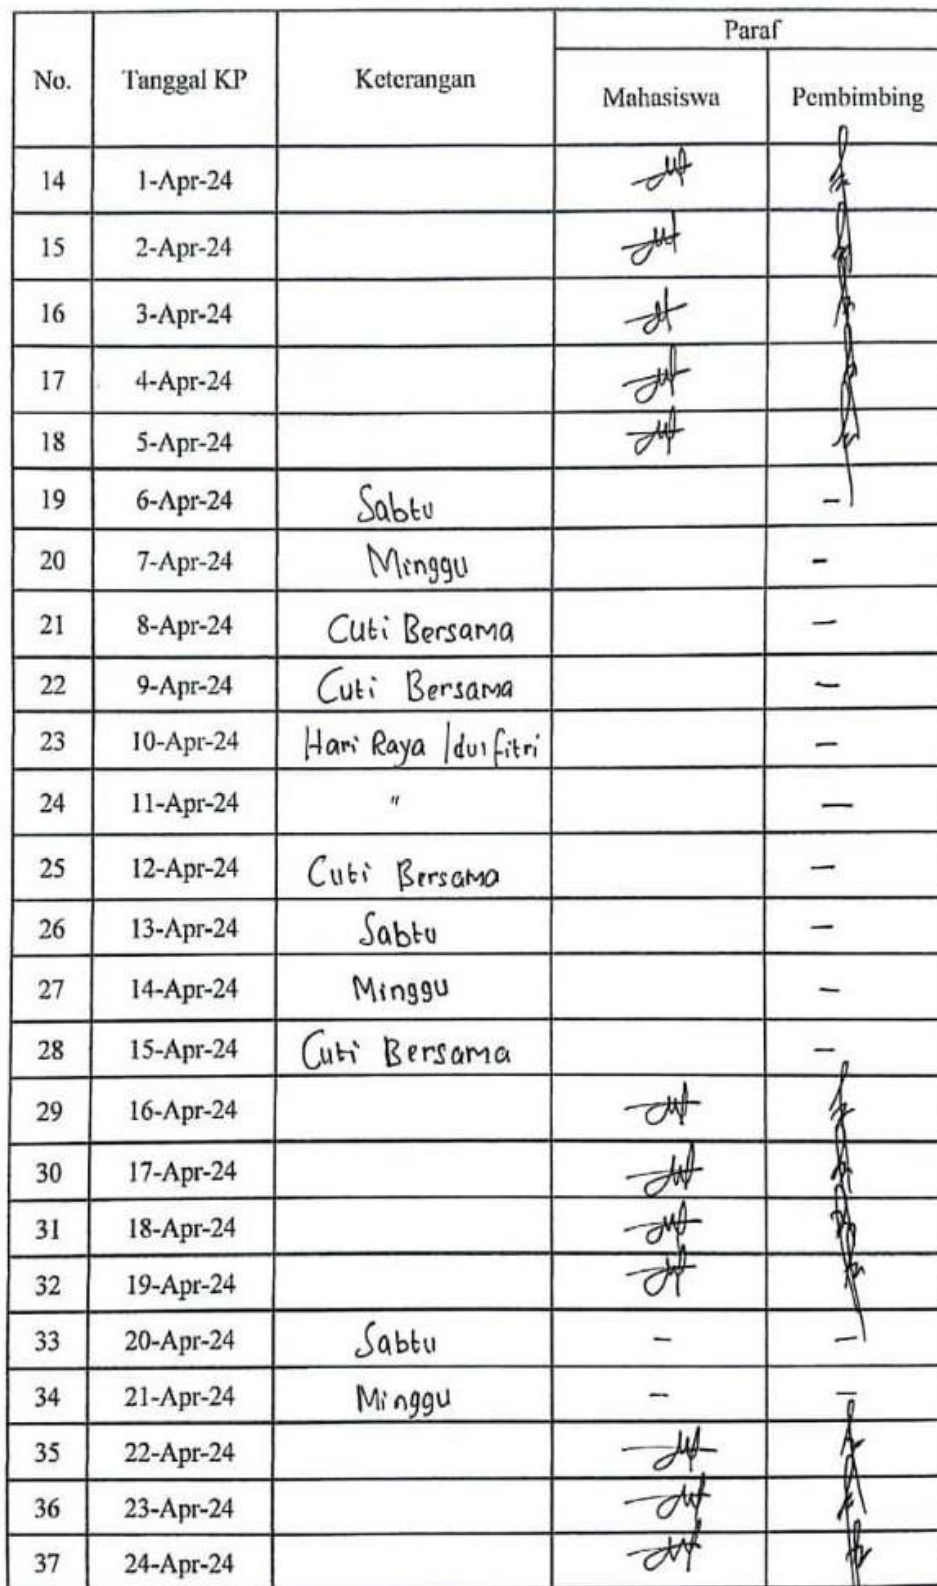 No. Tanggal KP Keterangan Paraf
Mahasiswa Pembimbing
14 1-Apr-24
15 2-Apr-24
16 3-Apr-24
17 4-Apr-24
18 5-Apr-24
19 6-Apr-24 Sabtu -
20 7-Apr-24 Minggu -
21 8-Apr-24 Cuti Bersama -
22 9-Apr-24 Cuti Bersama -
23 10-Apr-24 Hari Raya Idul fitri -
24 11-Apr-24 " -
25 12-Apr-24 Cuti Bersama -
26 13-Apr-24 Sabtu -
27 14-Apr-24 Minggu -
28 15-Apr-24 Cuti Bersama -
29 16-Apr-24
30 17-Apr-24
31 18-Apr-24
32 19-Apr-24
33 20-Apr-24 Sabtu - -
34 21-Apr-24 Minggu - -
35 22-Apr-24
36 23-Apr-24
37 24-Apr-24